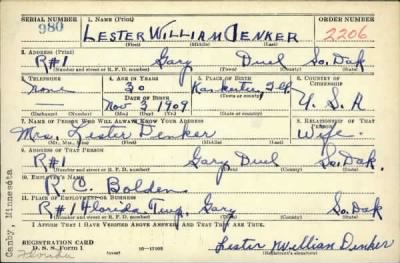 SERIAL NUMBER 1. NAME (Print) ORDER NUMBER
980 LESTER WILLIAM DENKER 2206
(First) (Middle) (Last)
2. ADDRESS (Print)
R#1 Gary Duel So. Dak
(Number and street or R. F. D. number) (Town) (County) (State)
3. TELEPHONE 4. AGE IN YEARS 5. PLACE OF BIRTH 6. COUNTRY OF CITIZENSHIP
none 30 Kankestee, Ill.
DATE OF BIRTH (Town or county) U. S. A
Nov 3 1909
(Exchange) (Number) (Mo.) (Day) (Yr.) (State or country)
7. NAME OF PERSON WHO WILL ALWAYS KNOW YOUR ADDRESS 8. RELATIONSHIP OF THAT PERSON
Mrs. Lester Denker Wife
(Mr., Mrs., Miss) (First) (Middle) (Last)
9. ADDRESS OF THAT PERSON
R#1 Gary Duel So. Dak.
(Number and street or R. F. D. number) (Town) (County) (State)
10. EMPLOYER'S NAME
R. C. Bolden
11. PLACE OF EMPLOYMENT OR BUSINESS
R#1 Florida Twp. Gary So. Dak
(Number and street or R. F. D. number) (Town) (County) (State)
I AFFIRM THAT I HAVE VERIFIED ABOVE ANSWERS AND THAT THEY ARE TRUE.
REGISTRATION CARD
D. S. S. Form 1
(over) Lester William Denker
(Registrant's signature)
Canby, Minnesota
Florida